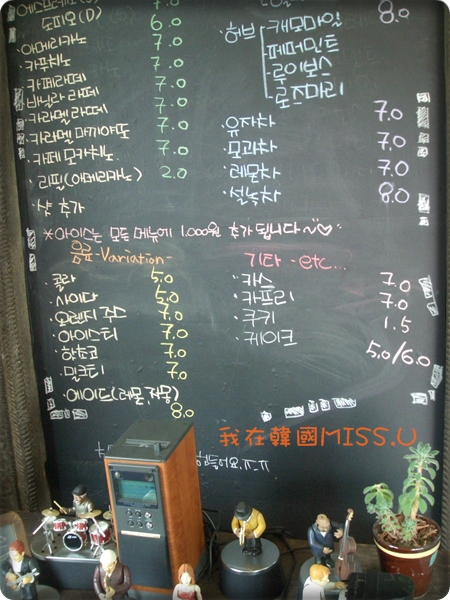 에스프레소
도피오(D) 6.0
·아메리카노 7.0
·카푸치노 7.0
·카페라떼 7.0
·바닐라 라떼 7.0
·카라멜 라떼 7.0
·카라멜 마끼아또 7.0
·카페 모카치노 7.0
·리필(아메리카노) 2.0
·샷 추가
·허브 캐모마일 8.0
페퍼민트
루이보스
로즈마리
·유자차 7.0
·모과차 7.0
·레몬차 7.0
·설록차 8.0
*아이스는 모든 메뉴에 1,000원 추가됩니다~♡
음료 -Variation-
콜라 5.0
·사이다 5.0
·오렌지 주스 7.0
·아이스티 7.0
·핫초코 7.0
·밀크티 7.0
·에이드(레몬,자몽) 8.0
기타 -etc...
·카스 7.0
·카프리 7.0
·쿠키 1.5
·케이크 5.0/6.0
힘들어요.ㅠ_ㅠ
我在韓國MISS.U